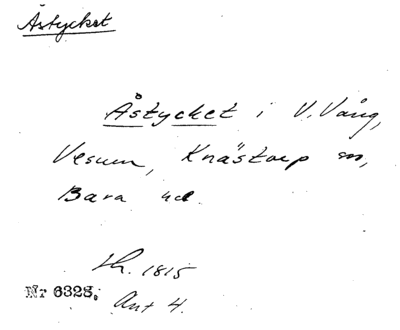 Åstycket
Åstycket i V. Vång,
Vesum, Knästorp sn,
Bara hd.
Lh. 1815
Nr 6328. Ant 4.